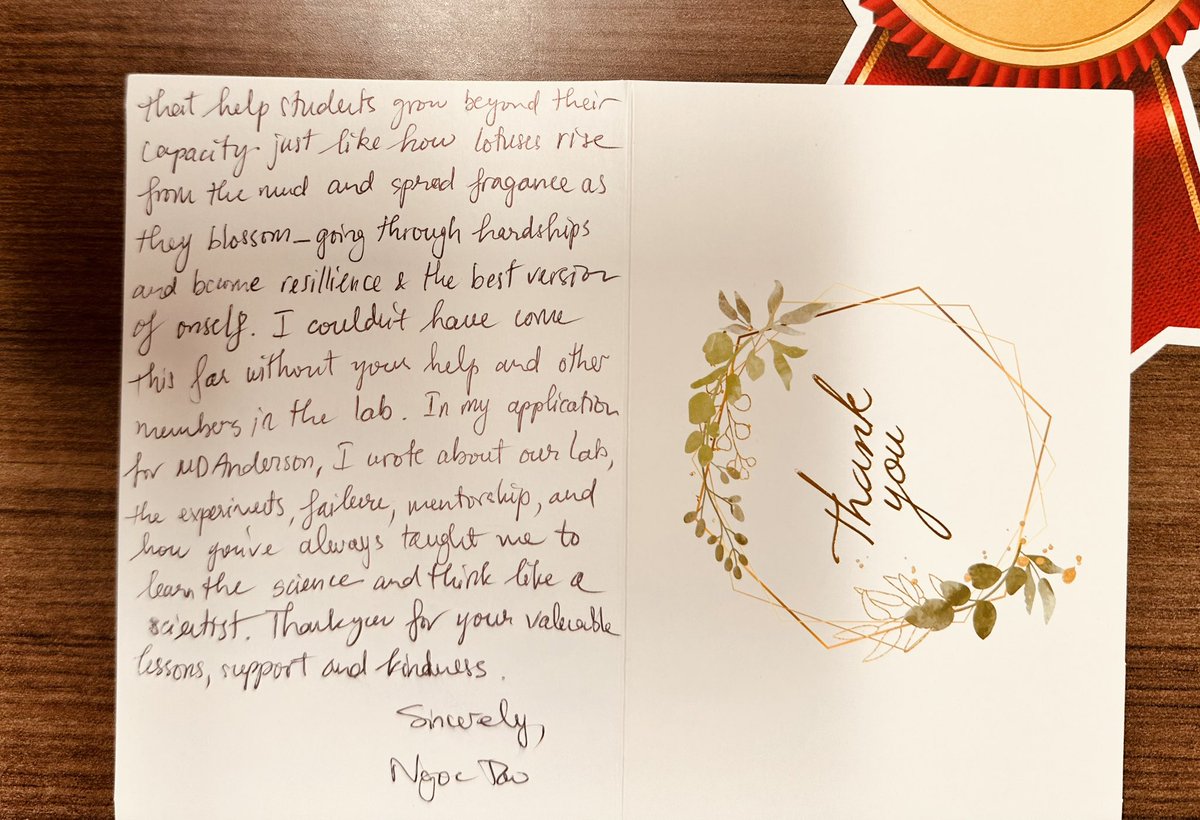 that help students grow beyond their
capacity just like how lotuses rise
from the mud and spread fragance as
they blossom – going through hardships
and become resillience & the best version
of onself. I couldn't have come
this far without your help and other
members in the lab. In my application
for MD Anderson, I wrote about our lab,
the experiments, failure, mentorship, and
how you've always taught me to
learn the science and think like a
scientist. Thank you for your valuable
lessons, support and kindness.
Sincerely,
Ngoc
thank
you